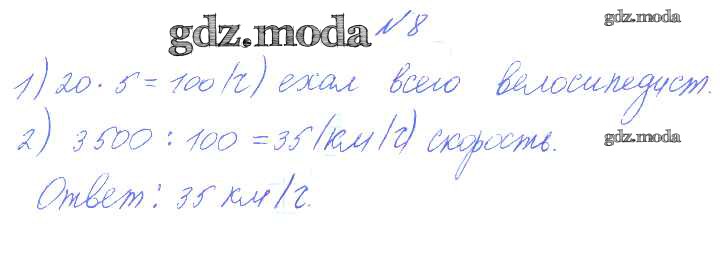 gdz.moda
gdz.moda №8
1) 20 · 5 = 100 (ч) ехал всего велосипедист.
2) 3500 : 100 = 35 (км/ч) скорость.
gdz.moda
Ответ: 35 км/ч.